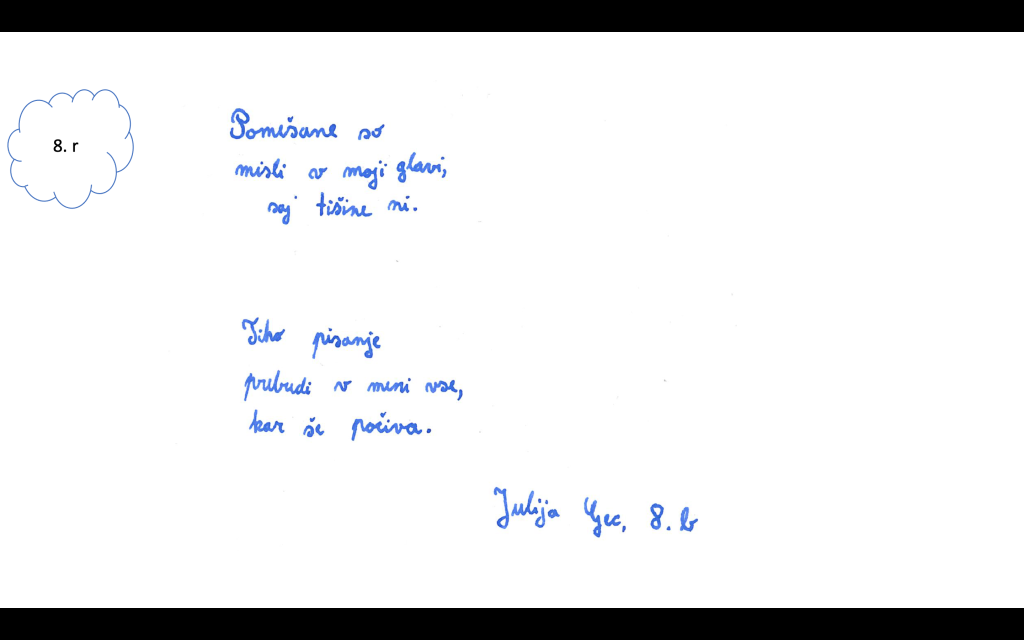 8. r
Pomešane so
misli v moji glavi,
saj tišine ni.
Tiho pisanje
prebudi v meni vse,
kar še počiva.
Julija Gec, 8. b